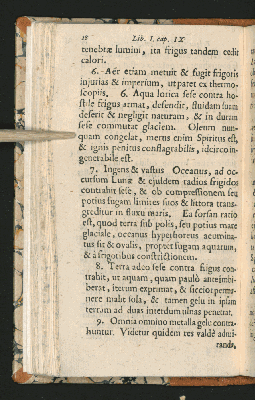 18 Lib. I. cap. IX
tenebræ lumini, ita frigus tandem cedit
calori.
6. Aër etiam metuit & fugit frigoris
injurias & imperium, ut patet ex thermo-
scopiis. 6. Aqua lorica sese contra ho-
stile frigus armat, defendit, fluidam suam
deserit & negligit naturam, & in durum
sese commutat glaciem. Oleum nun-
quam congelat, merus enim Spiritus est,
& ignis penitus conflagrabilis, idcirco in-
generabile est.
7. Ingens & vastus Oceanus, ad oc-
cursum Lunæ & ejusdem radios frigidos
contrahit sese, & ob compressionem seu
potius fugam limites suos & littora trans-
greditur in fluxu maris. Ea forsan ratio
est, quod terra sub polis, seu potius mare
glaciale, oceanus hyperboreus acumina-
tus sit & ovalis, propter fugam aquarum,
& à frigoribus constrictionem.
8. Terra adeo sese contra frigus con-
trahit, ut aquam, quam paulò ante
berat, iterum exprimat, & siccior perma-
nere malit sola, & tamen gelu in ipsam
terram ad duas interdum ulnas penetrat.
9. Omnia omnino metalla gelu contra-
huntur. Videtur quidem res valdè admi-
randa,